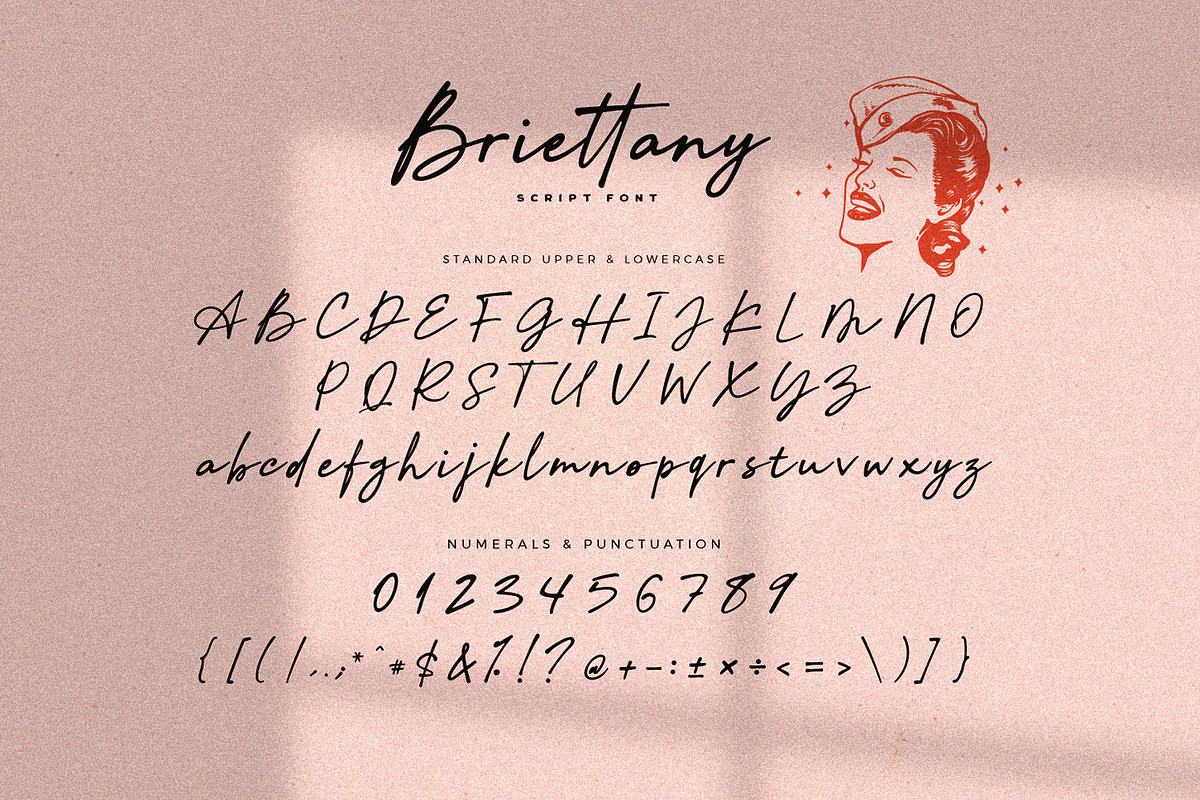 Briettany
SCRIPT FONT
STANDARD UPPER & LOWERCASE
A B C D E F G H I J K L M N O
P Q R S T U V W X Y Z
a b c d e f g h i j k l m n o p q r s t u v w x y z
NUMERALS & PUNCTUATION
0 1 2 3 4 5 6 7 8 9
{ [ ( / , . ; * ^ # $ & % ! ? @ + - : ± × ÷ < = > \ ) ] }